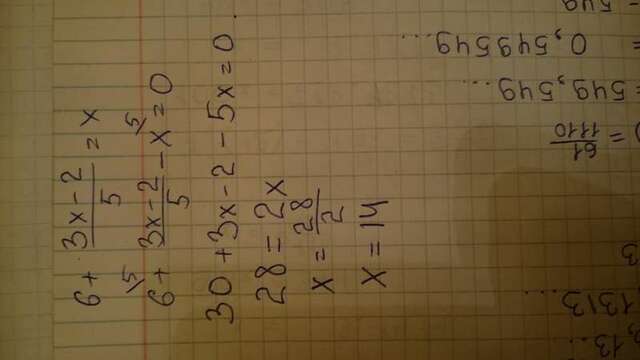 6 + (3x - 2)/5 = x
6 /5 + (3x - 2)/5 - x /5 = 0
30 + 3x - 2 - 5x = 0
28 = 2x
x = 28/2
x = 14
0,549549...
= 549,549...
) = 61/1110
1313...
,13...